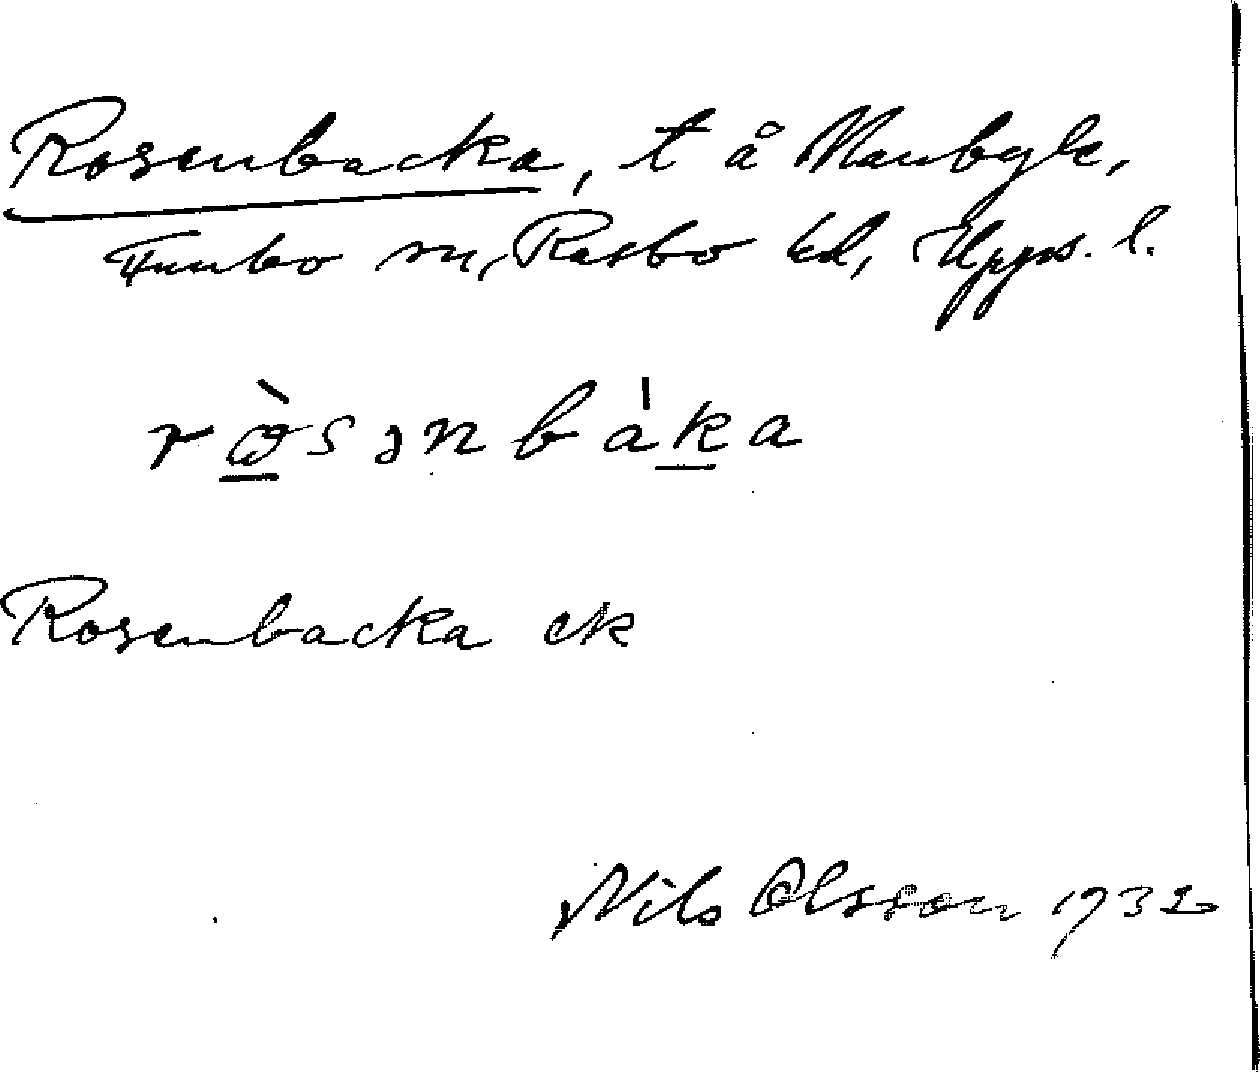 Rosenbacka, t å Marbyle,
Funbo sn, Rasbo hd, Upps. l.
rὼsənbáka
Rosenbacka ek
Nils Olsson 1932